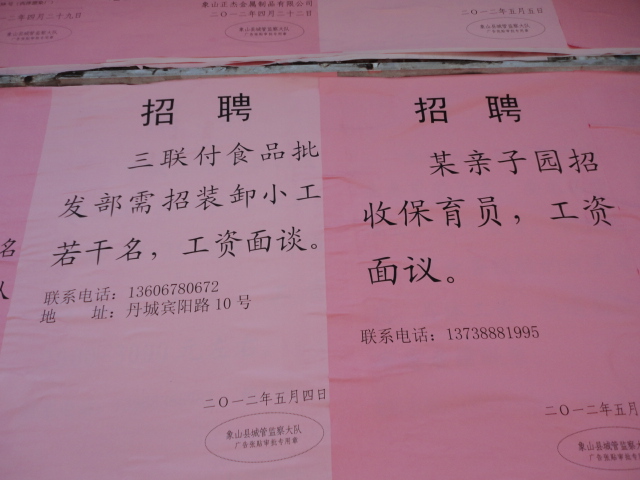 二年四月二十九日
象山正杰金属制品有限公司
二〇一二年四月二十三日
象山县城管监察大队
广告张贴审批专用章
二〇一二年五月五日
象山县城管监察大队
广告张贴审批专用章
招 聘
三联付食品批
发部需招装卸小工
若干名，工资面谈。
联系电话：13606780672
地 址：丹城宾阳路10号
二〇一二年五月四日
象山县城管监察大队
广告张贴审批专用章
招 聘
某亲子园招
收保育员，工资
面议。
联系电话：13738881995
二〇一二年五月
象山县城管监察大
广告张贴审批专用
名